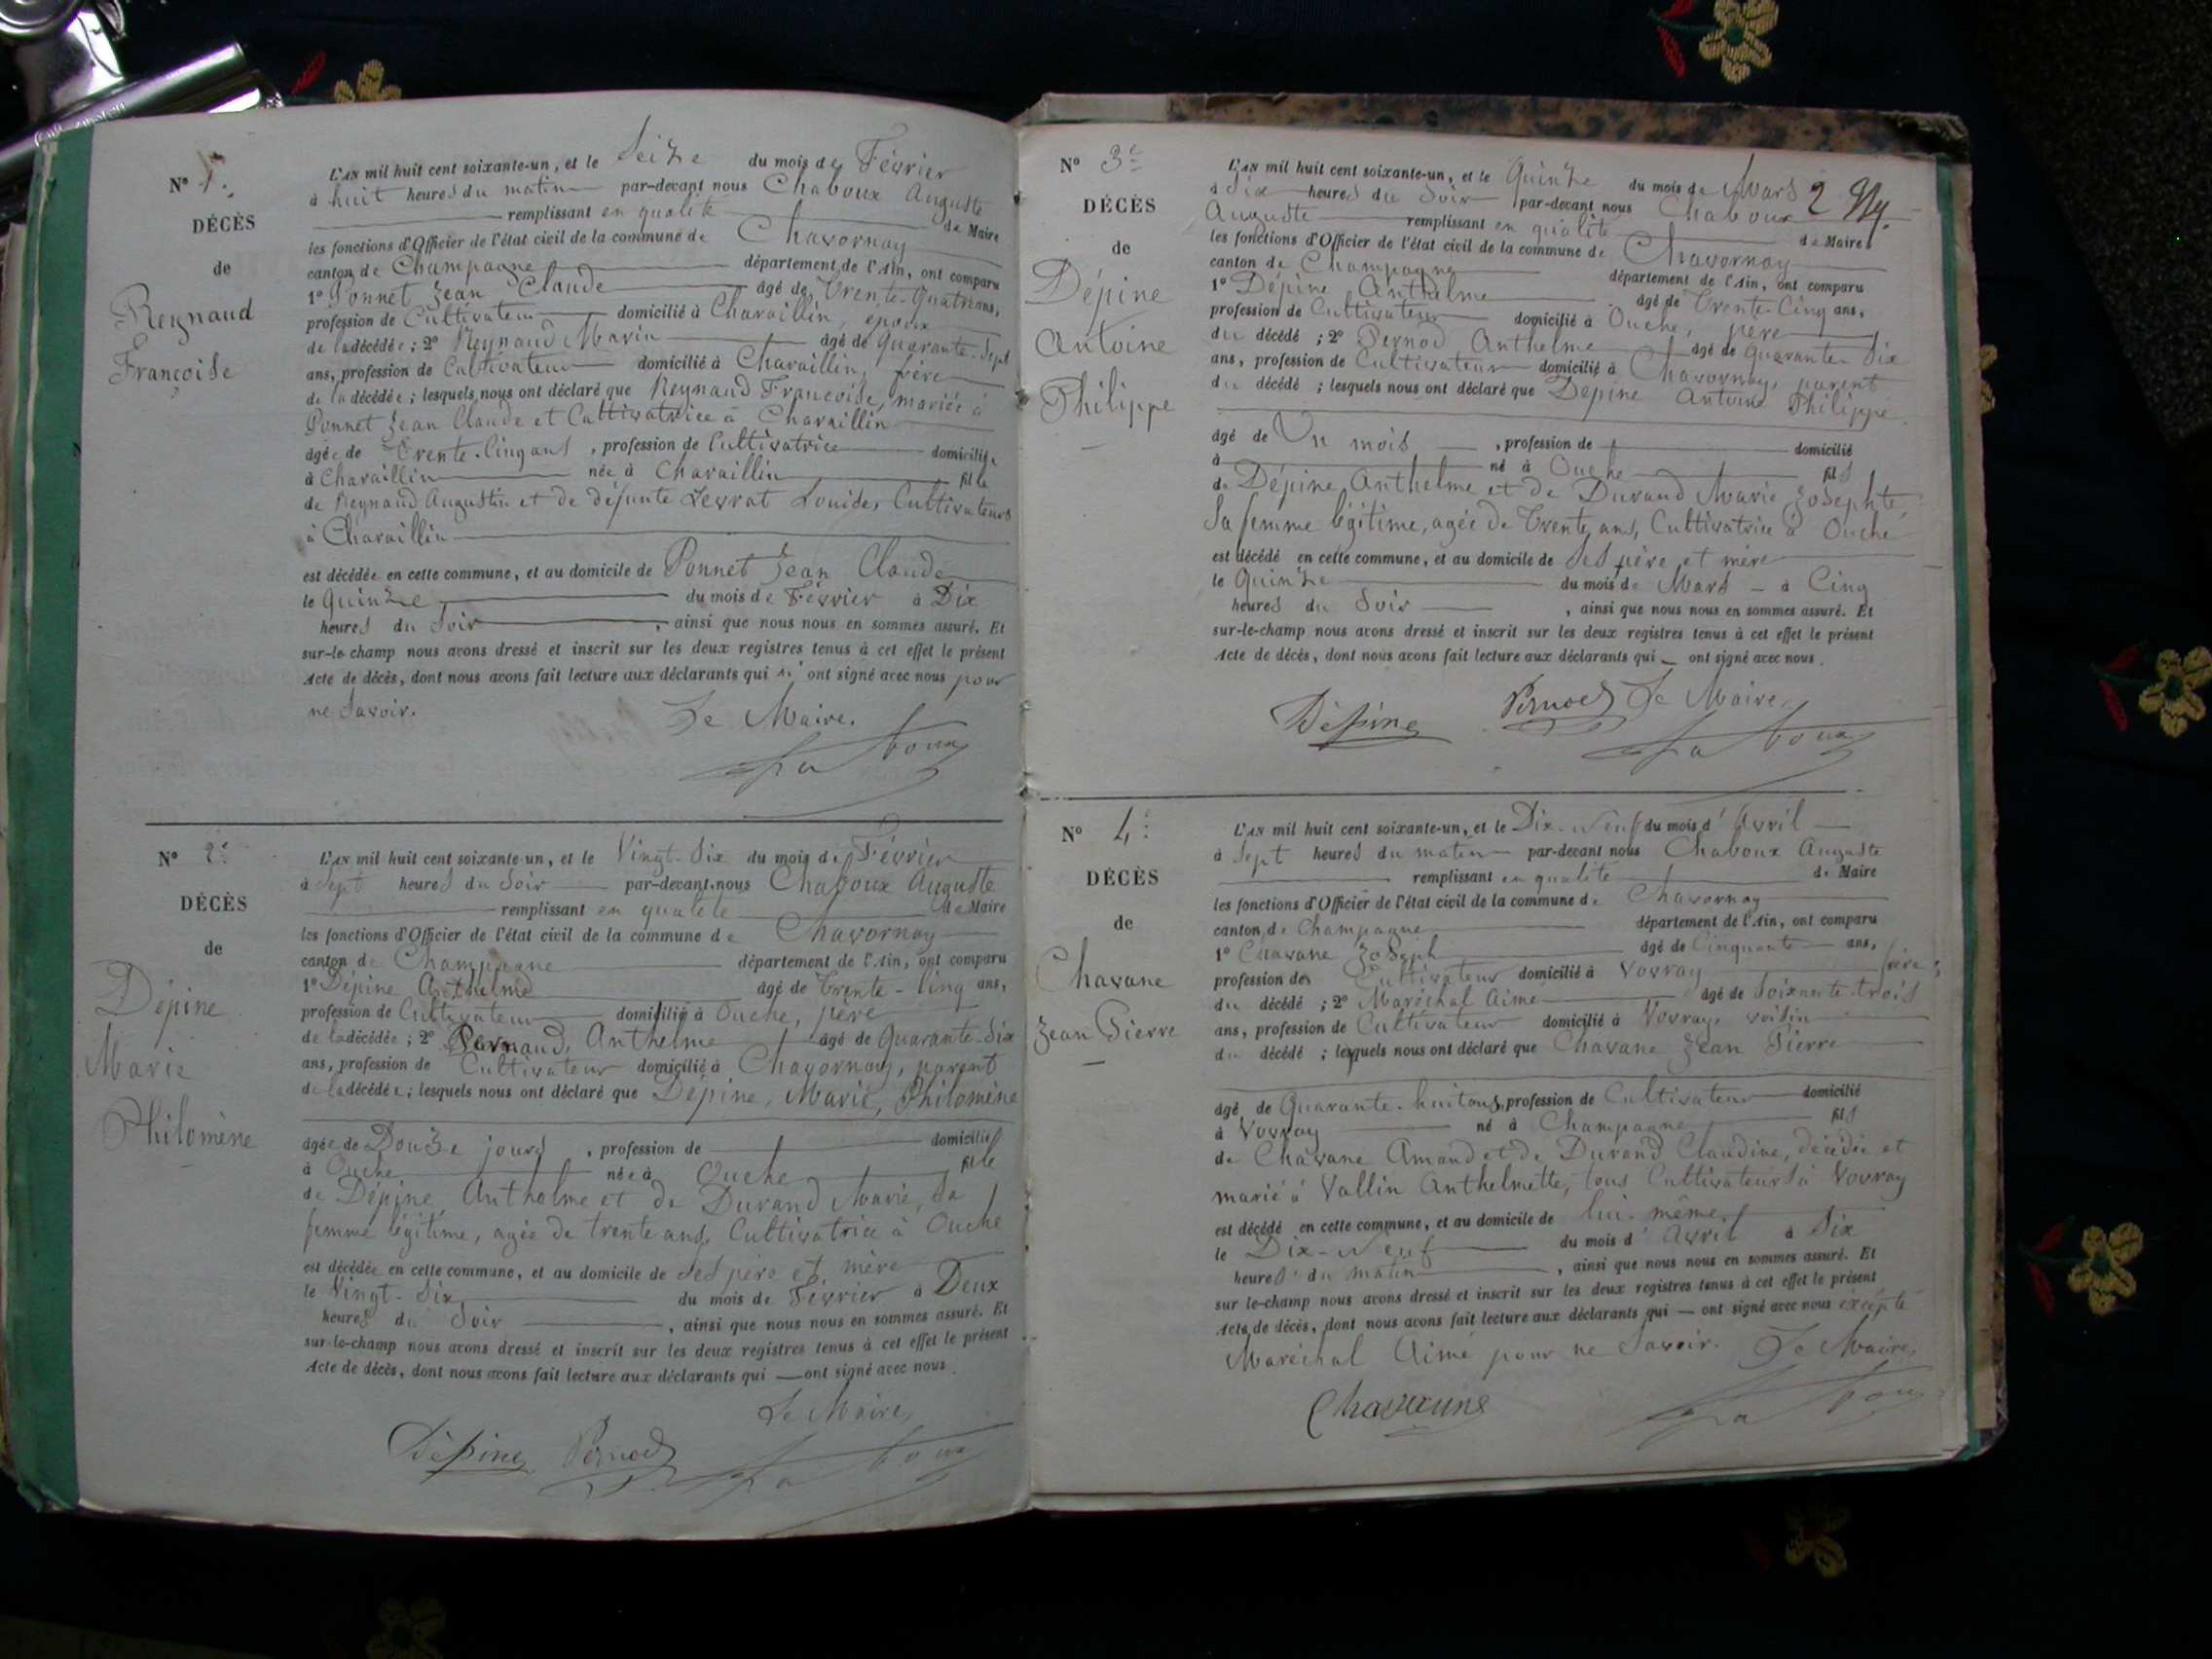 N° 1.
DÉCÈS
de
Reynaud
Françoise
L'AN mil huit cent soixante-un, et le Seize du mois de Février
à huit heures du matin par-devant nous Chaboux Auguste
remplissant en qualité de Maire
les fonctions d'Officier de l'état civil de la commune de Chavornay
canton de Champagne département de l'Ain, ont comparu
1° Ponnet Jean Claude âgé de Trente-Quatre ans,
profession de Cultivateur domicilié à Charaillin, époux
de la décédée ; 2° Reynaud Marin âgé de Quarante-Sept
ans, profession de Cultivateur domicilié à Charaillin, frère
de la décédée ; lesquels nous ont déclaré que Reynaud Françoise, mariée à
Ponnet Jean Claude et Cultivatrice à Charaillin
âgée de Trente-Cinq ans, profession de Cultivatrice domiciliée
à Charaillin née à Charaillin fille
de Reynaud Augustin et de défunte Levrat Louise, Cultivateurs
à Charaillin
est décédée en cette commune, et au domicile de Ponnet Jean Claude
le Quinze du mois de Février à Dix
heures du Soir, ainsi que nous nous en sommes assuré. Et
sur-le-champ nous avons dressé et inscrit sur les deux registres tenus à cet effet le présent
Acte de décès, dont nous avons fait lecture aux déclarants qui n'ont signé avec nous pour
ne Savoir. Le Maire,
Chaboux
N° 2.
DÉCÈS
de
Dépine
Marie
Philomène
L'AN mil huit cent soixante-un, et le Vingt-Six du mois de Février
à Sept heures du Soir par-devant nous Chaboux Auguste
remplissant en qualité de Maire
les fonctions d'Officier de l'état civil de la commune de Chavornay
canton de Champagne département de l'Ain, ont comparu
1° Dépine Anthelme âgé de Trente-Cinq ans,
profession de Cultivateur domicilié à Ouche, père
de la décédée ; 2° Anthelme âgé de Quarante-Six
ans, profession de Cultivateur domicilié à Chavornay, parent
de la décédée ; lesquels nous ont déclaré que Dépine, Marie, Philomène
âgée de Douze jours, profession de domiciliée
à Ouche née à Ouche fille
de Dépine Anthelme et de Durand Marie, Sa
femme légitime, agée de trente ans, Cultivatrice à Ouche
est décédée en cette commune, et au domicile de Ses père et mère
le Vingt-Six du mois de Février à Deux
heures du Soir, ainsi que nous nous en sommes assuré. Et
sur-le-champ nous avons dressé et inscrit sur les deux registres tenus à cet effet le présent
Acte de décès, dont nous avons fait lecture aux déclarants qui — ont signé avec nous.
Le Maire,
Dépine Pernod Chaboux
N° 3
DÉCÈS
de
Dépine
Antoine
Philippe
L'AN mil huit cent soixante-un, et le Quinze du mois de Mars 2
à Six heures du Soir par-devant nous Chaboux
Auguste remplissant en qualité de Maire
les fonctions d'Officier de l'état civil de la commune de Chavornay
canton de Champagne département de l'Ain, ont comparu
1° Dépine Anthelme âgé de Trente-Cinq ans,
profession de Cultivateur domicilié à Ouche, père
du décédé ; 2° Pernod Anthelme âgé de Quarante-Six
ans, profession de Cultivateur domicilié à Chavornay, parent
du décédé ; lesquels nous ont déclaré que Dépine Antoine Philippe
âgé de Un mois, profession de domicilié
à né à Ouche fils
de Dépine, Anthelme et de Durand Marie Josephte,
Sa femme légitime, agée de Trente ans, Cultivatrice à Ouche
est décédé en cette commune, et au domicile de Ses père et mère
le Quinze du mois de Mars à Cinq
heures du Soir, ainsi que nous nous en sommes assuré. Et
sur-le-champ nous avons dressé et inscrit sur les deux registres tenus à cet effet le présent
Acte de décès, dont nous avons fait lecture aux déclarants qui — ont signé avec nous.
Dépine Pernod Le Maire,
Chaboux
N° 4
DÉCÈS
de
Chavane
Jean Pierre
L'AN mil huit cent soixante-un, et le Dix-Neuf du mois d'Avril
à Sept heures du matin par-devant nous Chaboux Auguste
remplissant en qualité de Maire
les fonctions d'Officier de l'état civil de la commune de Chavornay
canton de Champagne département de l'Ain, ont comparu
1° Chavane Joseph âgé de Cinquante ans,
profession de Cultivateur domicilié à Vovray frère
du décédé ; 2° Maréchal Aimé âgé de Soixante-trois
ans, profession de Cultivateur domicilié à Vovray, voisin
du décédé ; lesquels nous ont déclaré que Chavane Jean Pierre
âgé de Quarante-huit ans, profession de Cultivateur domicilié
à Vovray né à Champagne fils
de Chavane Amand et de Durand Claudine, décédée et
marié à Vallin Anthelmette, tous Cultivateurs à Vovray
est décédé en cette commune, et au domicile de lui-même,
le Dix-Neuf du mois d'Avril à Six
heures du matin, ainsi que nous nous en sommes assuré. Et
sur le-champ nous avons dressé et inscrit sur les deux registres tenus à cet effet le présent
Acte de décès, dont nous avons fait lecture aux déclarants qui — ont signé avec nous excepté
Maréchal Aimé pour ne Savoir. Le Maire,
Chavanne Chaboux